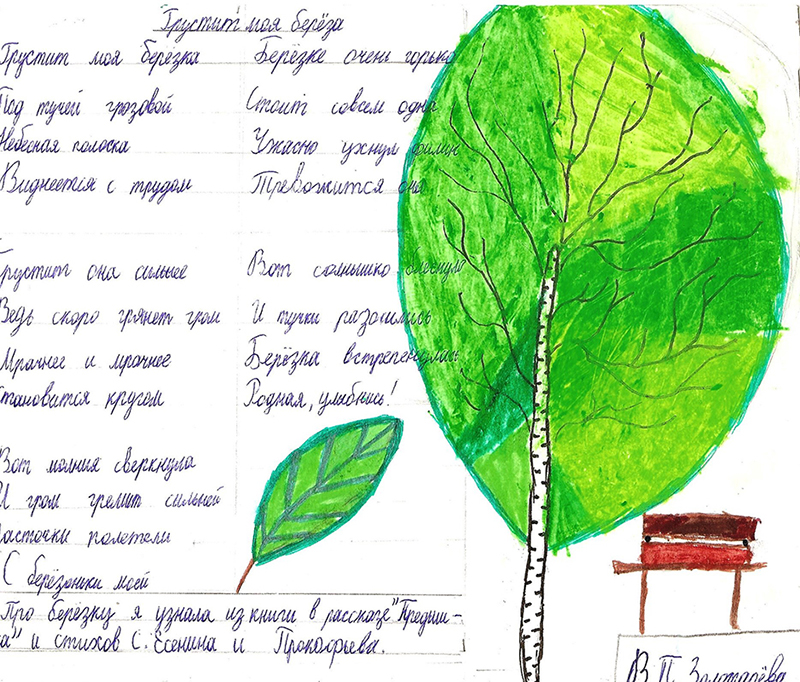 Грустит моя берёза
Грустит моя берёзка
Под тучей грозовой
Небесная полоска
Виднеется с трудом
Грустит она сильнее
Ведь скоро грянет гром
Мрачнее и мрачнее
тановится кругом
Вот молния сверкнула
И гром гремит сильней
асточки полетели
С берёзоньки моей
Берёзке очень горько
Стоит совсем одна
Ужасно ухнул филин
Тревожится она
Вот солнышко блеснуло
И тучки разошлись
Берёзка встрепенулись
Родная, улыбнись!
Про берёзку я узнала из книги в рассказе
и стихов С. Есенина и Прокофьева.
В П Золотарёва